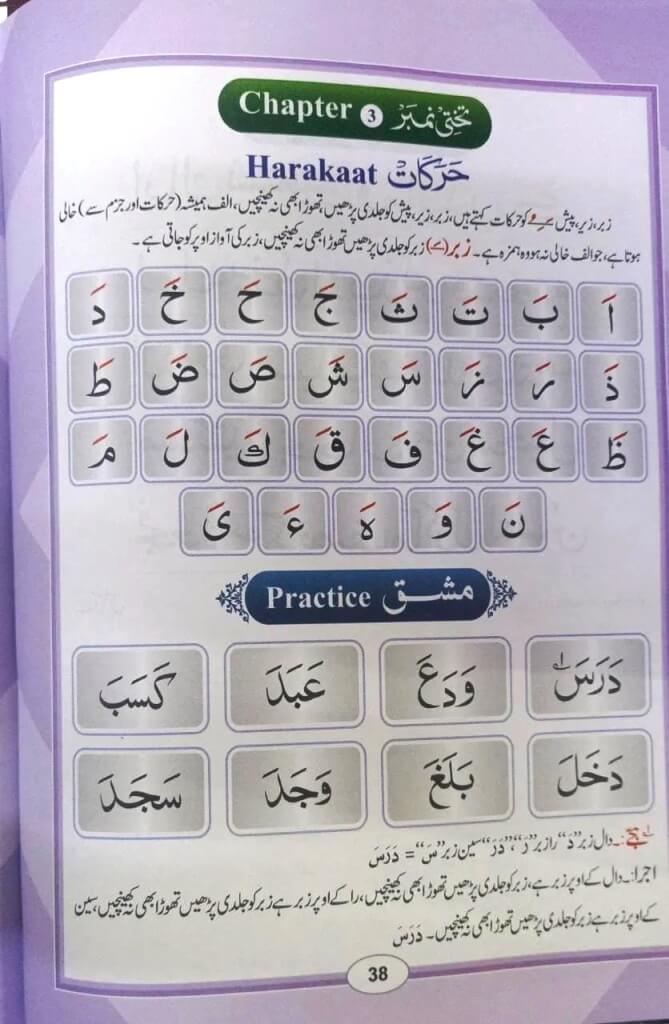 Chapter 3 تختی نمبر
Harakaat حَرَکَات
زبر، زیر، پیش ◌َ ◌ِ ◌ُ کو حرکات کہتے ہیں، زبر، زیر، پیش کو جلدی پڑھیں، تھوڑا بھی نہ کھینچیں، الف ہمیشہ (حرکات اور جزم سے) خالی
ہوتا ہے، جو الف خالی نہ ہو وہ ہمزہ ہے۔ زبر (◌َ) زبر کو جلدی پڑھیں تھوڑا بھی نہ کھینچیں، زبر کی آواز اوپر کو جاتی ہے۔
اَ بَ تَ ثَ جَ حَ خَ دَ
ذَ رَ زَ سَ شَ صَ ضَ طَ
ظَ عَ غَ فَ قَ كَ لَ مَ
نَ وَ هَ ءَ یَ
Practice مشق
دَرَسَ وَدَعَ عَبَدَ كَسَبَ
دَخَلَ بَلَغَ وَجَدَ سَجَدَ
ہجے:۔ دال زبر ”دَ“ را زبر ”رَ“، ”دَرَ“ سین زبر ”سَ“ = دَرَسَ
اجرا:۔ دال کے اوپر زبر ہے، زبر کو جلدی پڑھیں تھوڑا بھی نہ کھینچیں، را کے اوپر زبر ہے زبر کو جلدی پڑھیں تھوڑا بھی نہ کھینچیں، سین
کے اوپر زبر ہے زبر کو جلدی پڑھیں تھوڑا بھی نہ کھینچیں۔ دَرَسَ
38